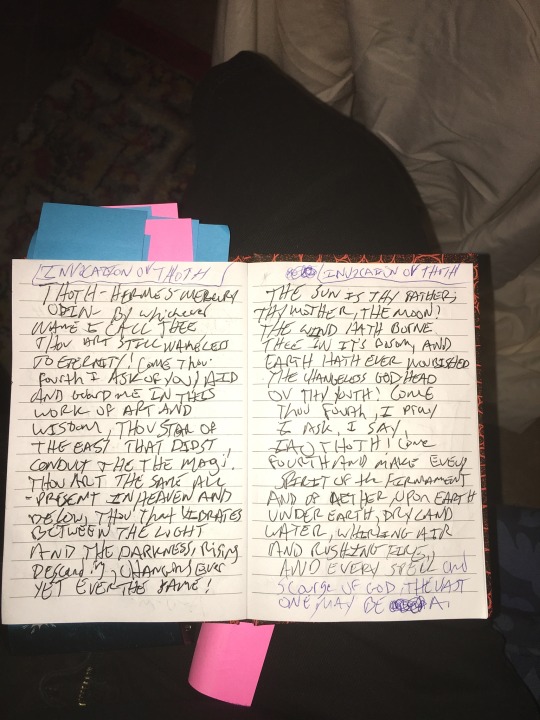 INVOCATION OV THOTH
THOTH-HERMES MERCURY
ODIN- By whichever
NAME I CALL THEE
THOU ART STILL NAMELESS
TO ETERNITY! COME THOU
FOURTH I ASK OF YOU, AID
AND GUARD ME IN THIS
WORK OF ART AND
WISDOM, THOU STAR OF
THE EAST THAT DIDST
CONDUIT THE THE MAGI!
THOU ART THE SAME ALL
-PRESENT IN HEAVEN AND
BELOW, THOU THAT VIBRATES
BETWEEN THE LIGHT
AND THE DARKNESS, RISING
DESCENDING, CHANGING EVER
YET EVER THE SAME!
INVOCATION OV THOTH
THE SUN IS THY FATHER;
THY MOTHER, THE MOON!
THE WIND HATH BORNE
THEE IN IT'S BOSOM, AND
EARTH HATH EVER NOURISHED
THE CHANGELESS GOD-HEAD
OV THY YOUTH! COME
THOU FOURTH, I PRAY
I ASK, I SAY,
IAO THOTH! COME
FOURTH AND MAKE EVERY
SPIRIT OF the FIRMAMENT
AND OF AETHER UPON EARTH
UNDER EARTH, DRY LAND
WATER, WHIRLING AIR
AND RUSHING FIRE,
AND EVERY SPELL and
SCOURGE OF GOD THE VAST
ONE MAY BE